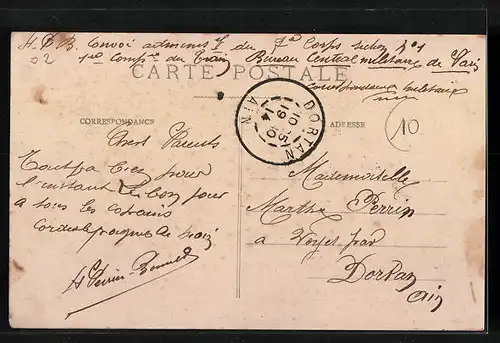 H. P. B. Convoi du 7e Corps section No 1
1re du Train Bureau Central militaire de Paris
CARTE POSTALE
Correspondance militaire
CORRESPONDANCE
ADRESSE
DORTAN
10
19
14
AIN
10
Chers Parents
Tout va bien pour
l'instant Le bonjour
a tous les
cordiale poignée de main
H Perrin-Bonnet
Mademoiselle
Marthe Perrin
a par
Dortan
Ain